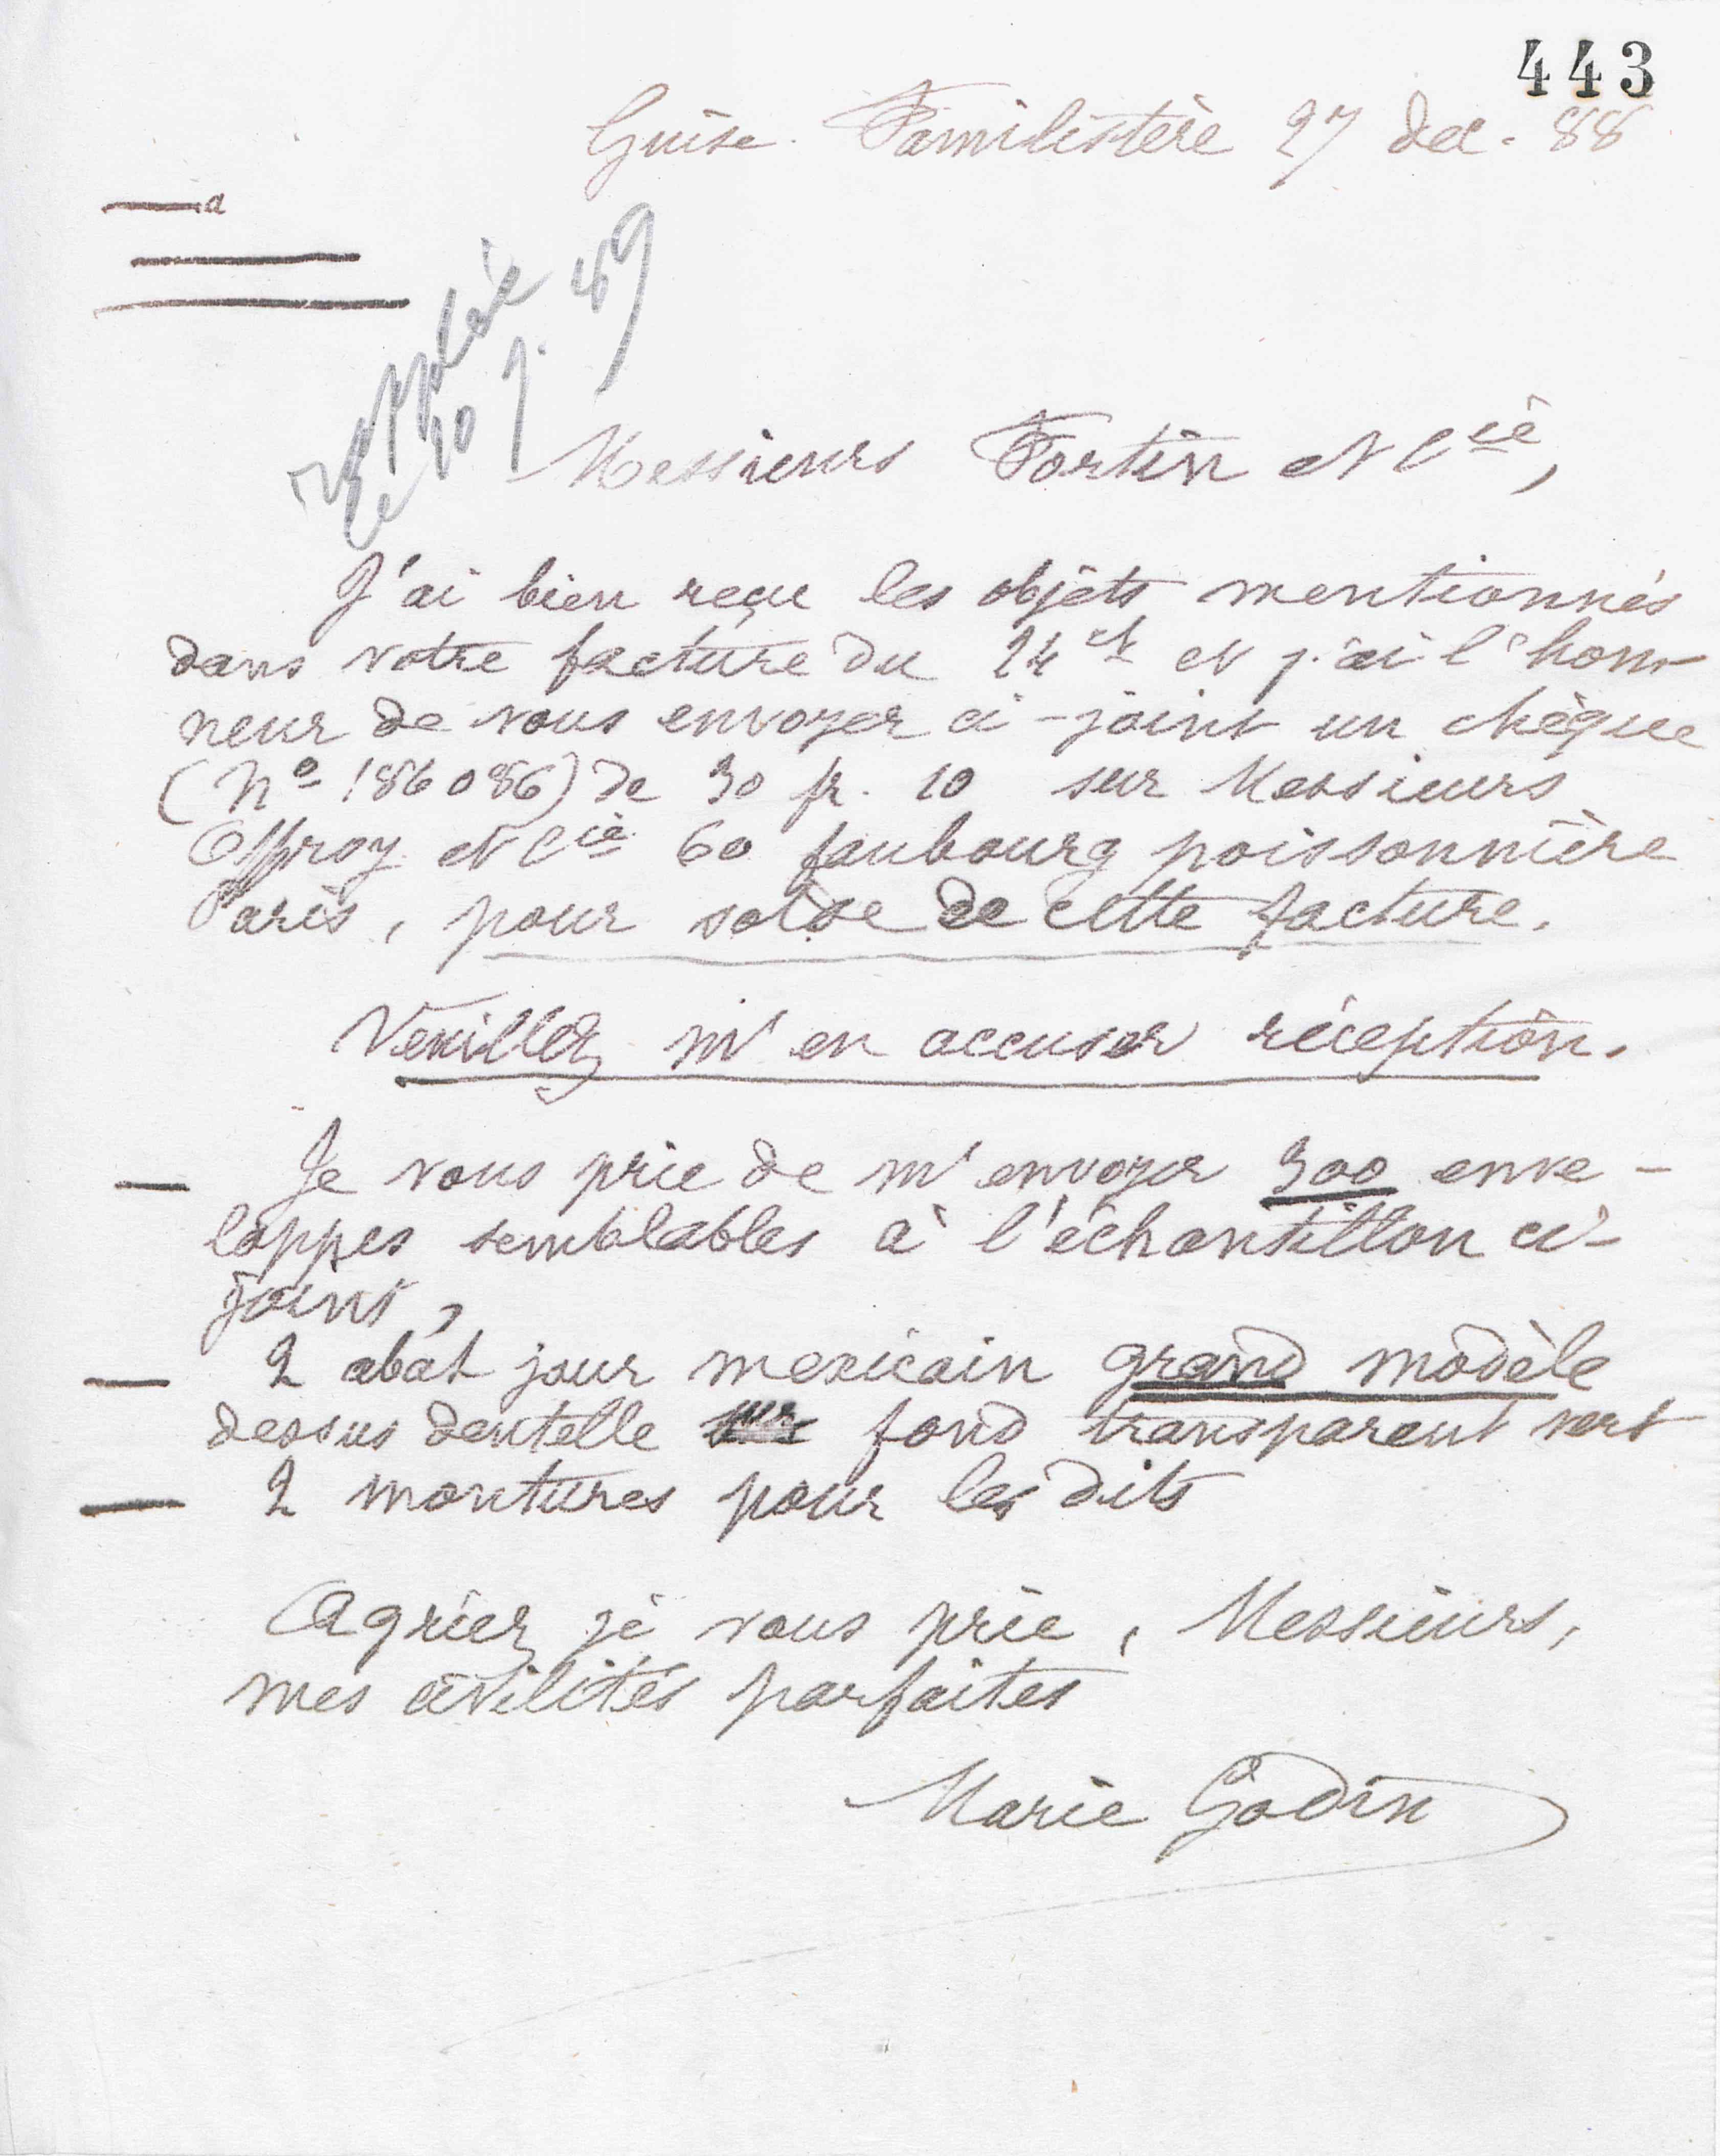 443
Guise. Familistère 27 dec. 88
Rappelée
le 10 J. 89
Messieurs Fortin et Cie,
J'ai bien reçu les objets mentionnés
dans votre facture du 24 ct et j'ai l'hon-
neur de vous envoyer ci-joint un chèque
(No 186086) de 30 fr. 10 sur Messieurs
Offroy et Cie 60 faubourg poissonnière
Paris, pour solde de cette facture.
Veuillez m'en accuser réception.
Je vous prie de m'envoyer 300 enve-
loppes semblables à l'échantillon ci-
joint,
2 abat jour mexicain grand modèle
dessus dentelle fond transparent vert
2 montures pour les dits
Agréez, je vous prie, Messieurs,
mes civilités parfaites
Marie Godin